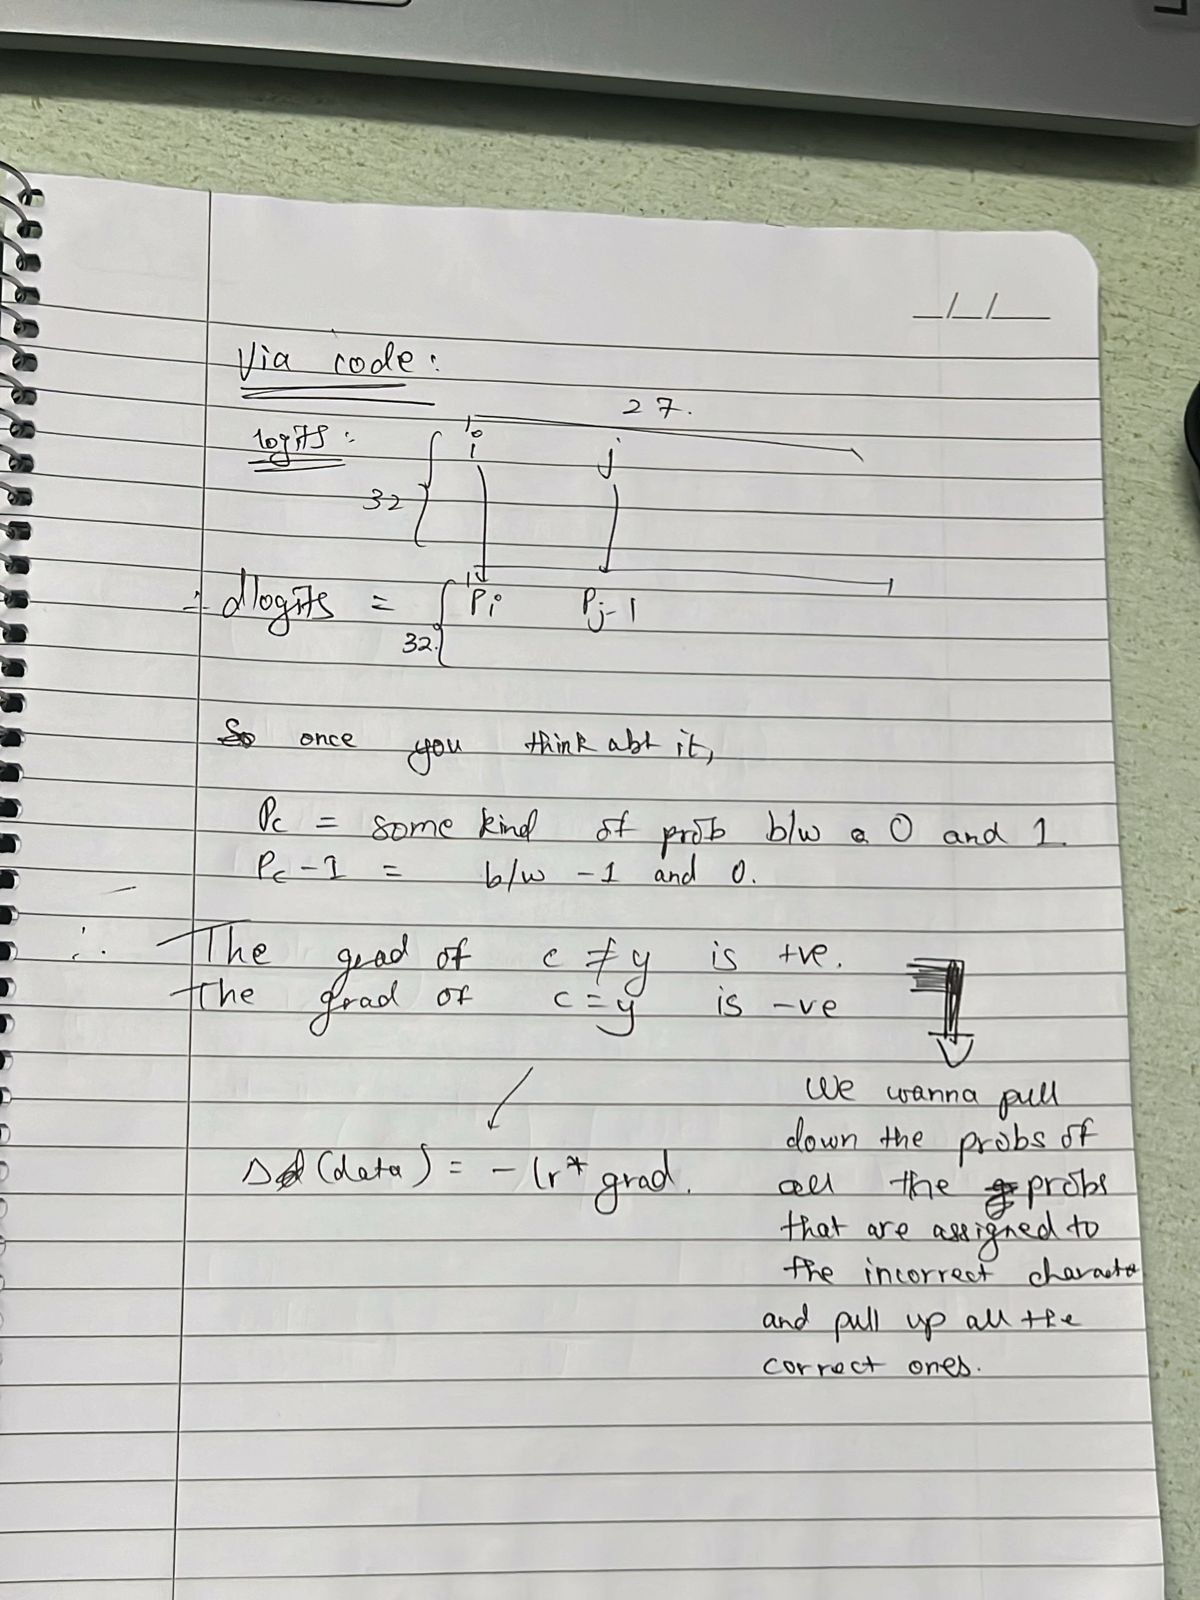 _/_/_
Via code:
27.
logits:
i j
32
∴ dlogits = Pi Pj-1
32.
So once you think abt it,
Pc = some kind of prob b/w 0 and 1.
Pc - 1 = b/w -1 and 0.
∴ The grad of c ≠ y is +ve.
The grad of c = y is -ve
Δ (data) = - lr * grad.
We wanna pull
down the probs of
all the probs
that are assigned to
the incorrect
and pull up all the
correct ones.